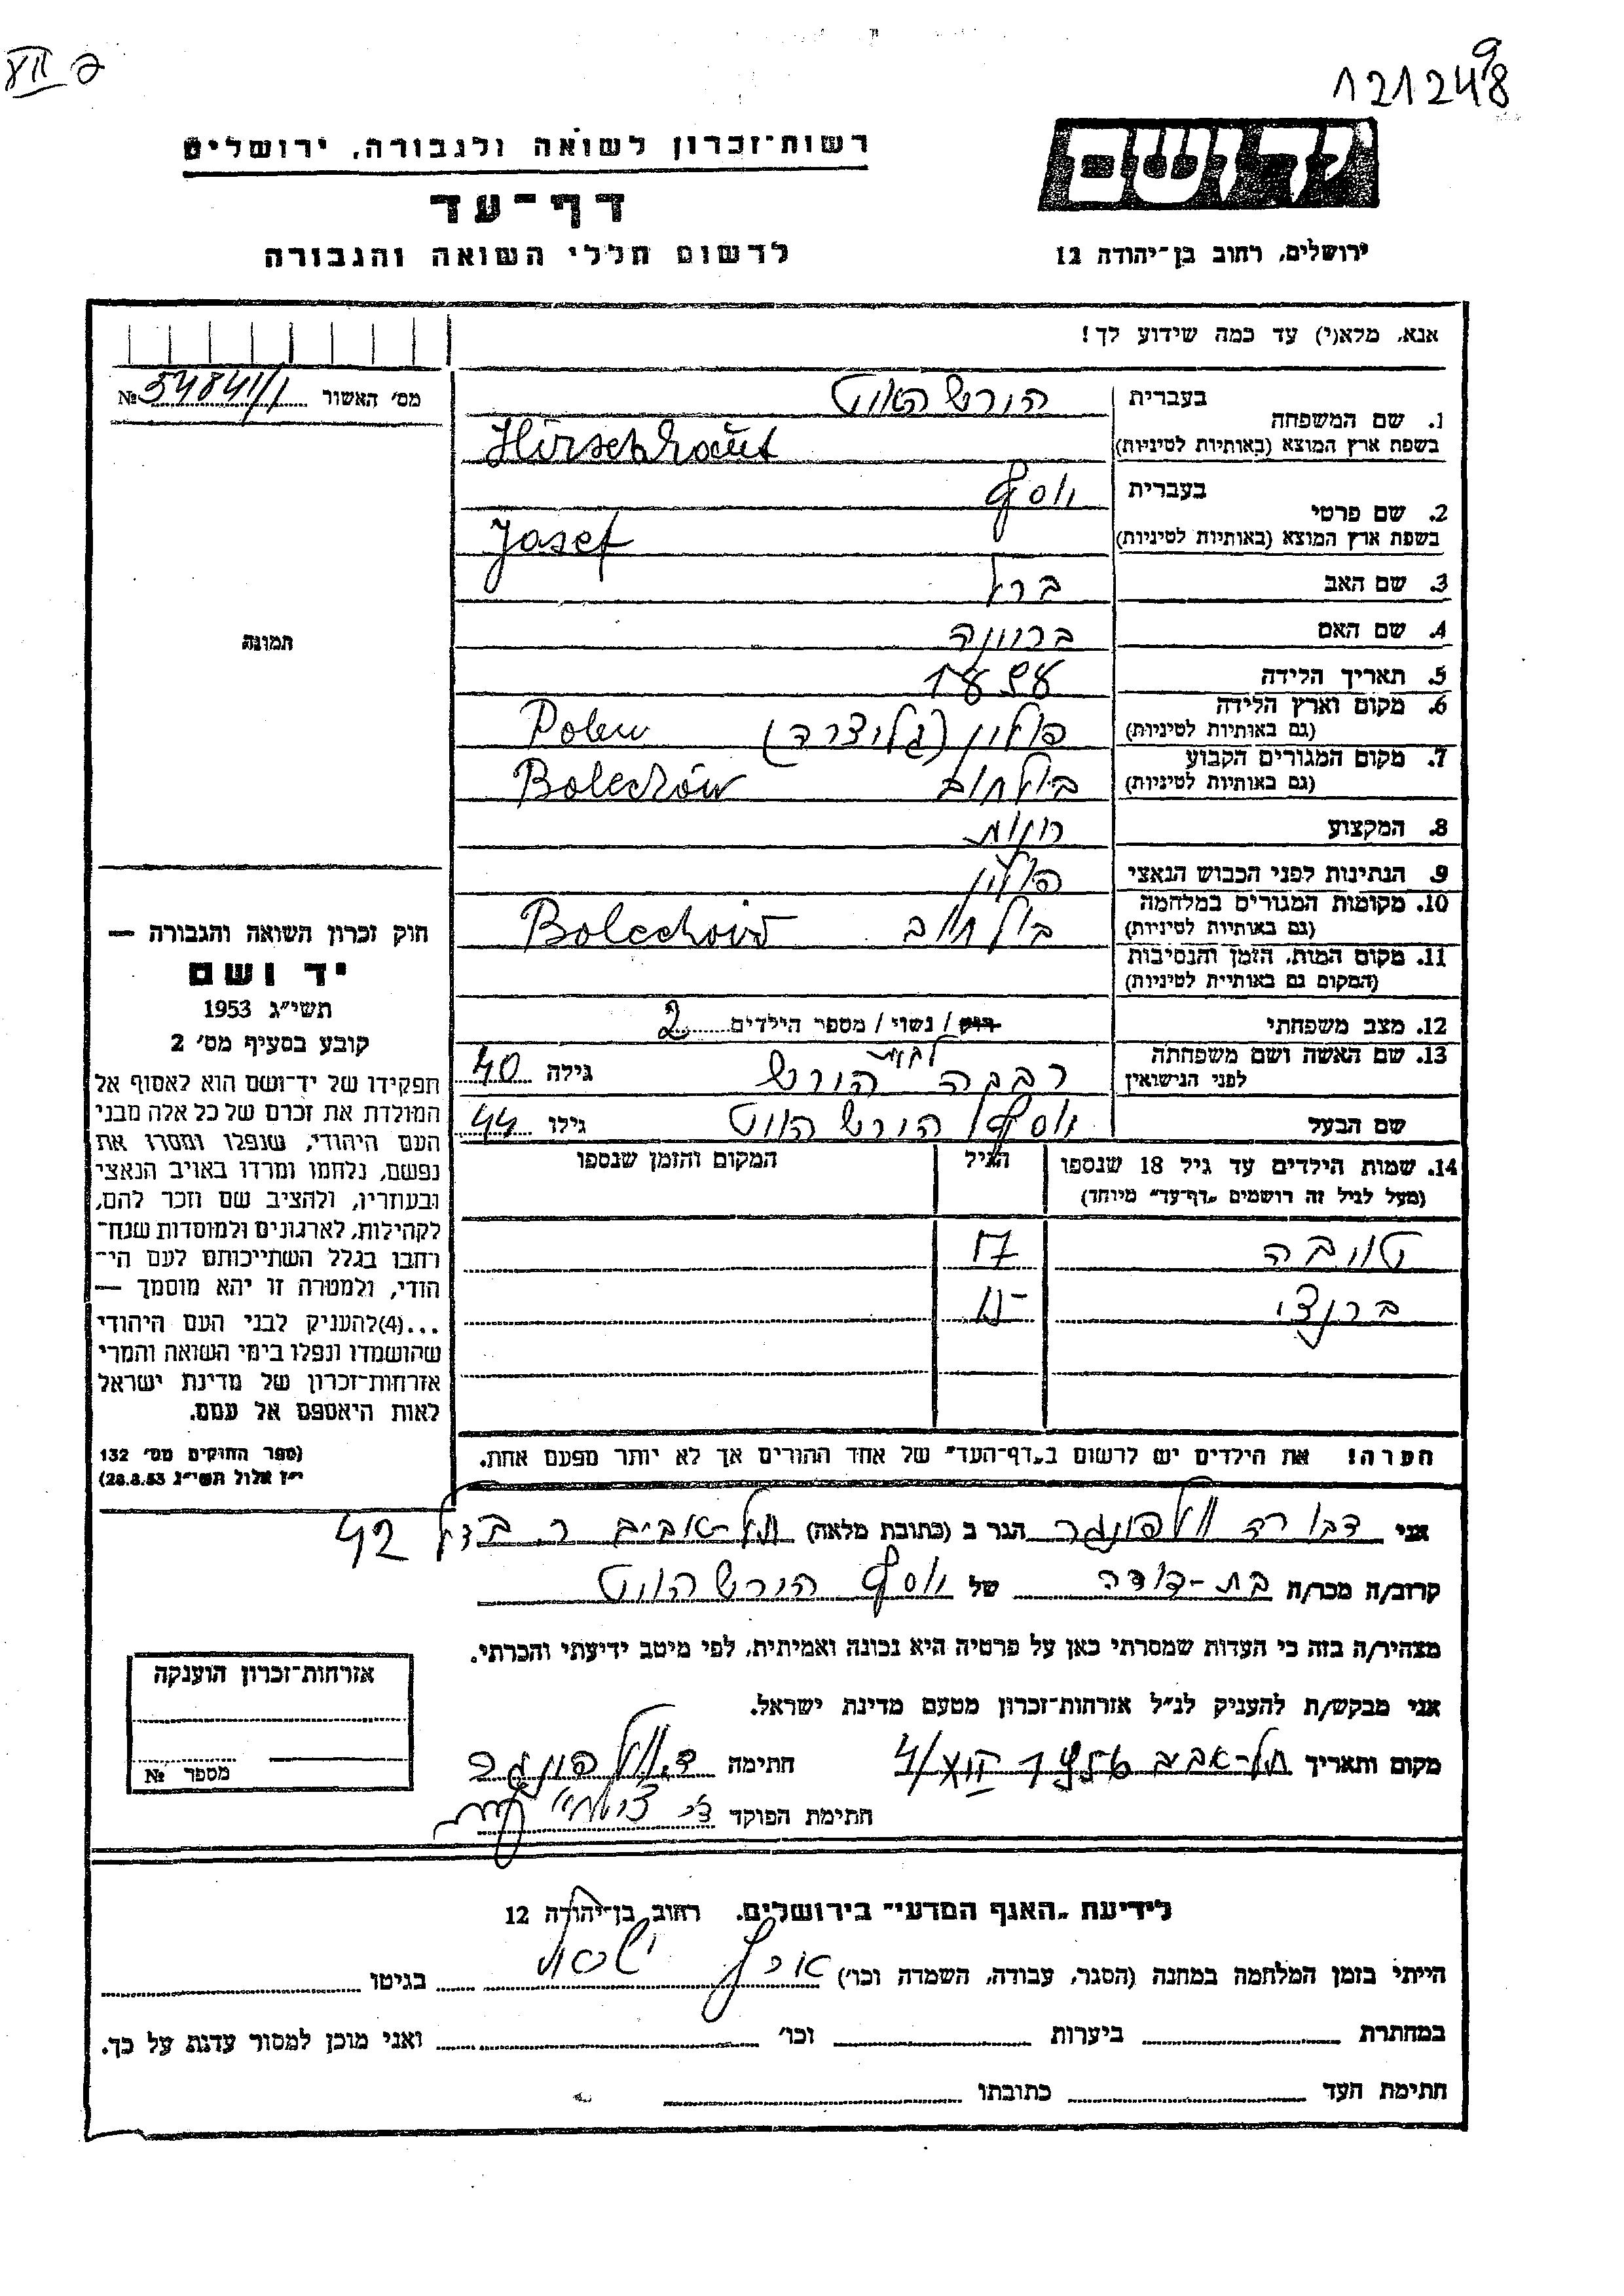 121249
8
רשות־זכרון לשואה ולגבורה, ירושלים
דף־עד
לרשום חללי השואה והגבורה
יד ושם
ירושלים, רחוב בן־יהודה 12
אנא, מלא(י) עד כמה שידוע לך!
מס׳ האשור № 54841/1
1. שם המשפחה
בעברית הורשהאוט
בשפת ארץ המוצא (באותיות לטיניות) Hirschhaut
2. שם פרטי
בעברית יוסף
בשפת ארץ המוצא (באותיות לטיניות) Josef
3. שם האב ברל
4. שם האם ברוונה
5. תאריך הלידה
6. מקום וארץ הלידה (גם באותיות לטיניות) פולין Polen
7. מקום המגורים הקבוע (גם באותיות לטיניות) בולחוב Bolechów
8. המקצוע
9. הנתינות לפני הכבוש הנאצי פולין
10. מקומות המגורים במלחמה (גם באותיות לטיניות) בולחוב Bolechów
11. מקום המות, הזמן והנסיבות (המקום גם באותיית לטיניות)
12. מצב משפחתי רווק / נשוי / מספר הילדים 2
13. שם האשה ושם משפחתה לפני הנישואין רבקה הורש גילה 40
שם הבעל יוסף הורשהוט גילו 44
14. שמות הילדים עד גיל 18 שנספו
(מעל לגיל זה רושמים „דף־עד" מיוחד)
הגיל
המקום והזמן שנספו
טויבה 17
ברנצי
הערה! את הילדים יש לרשום ב„דף־העד" של אחד ההורים אך לא יותר מפעם אחת.
תמונה
חוק זכרון השואה והגבורה —
יד ושם
תשי״ג 1953
קובע בסעיף מס׳ 2
תפקידו של יד־ושם הוא לאסוף אל
המולדת את זכרם של כל אלה מבני
העם היהודי, שנפלו ומסרו את
נפשם, נלחמו ומרדו באויב הנאצי
ובעוזריו, ולהציב שם וזכר להם,
לקהילות, לארגונים ולמוסדות שנח־
רחבו בגלל השתייכותם לעם הי־
הודי, ולמטרה זו יהא מוסמך —
...(4)להעניק לבני העם היהודי
שהושמדו ונפלו בימי השואה והמרי
אזרחות־זכרון של מדינת ישראל
לאות היאספם אל עמם.
(ספר החוקים מס׳ 132
י״ז אלול תשי״ג 28.8.53)
אני דבורה וולפונגר הגר ב (כתובת מלאה) תל-אביב ר. בזל 42
קרוב/ה מכר/ה בת-דודה של יוסף הורשהוט
מצהיר/ה בזה כי העדות שמסרתי כאן על פרטיה היא נכונה ואמיתית, לפי מיטב ידיעתי והכרתי.
אני מבקש/ת להעניק לנ״ל אזרחות־זכרון מטעם מדינת ישראל.
מקום ותאריך תל-אביב חתימה ד. וולפונגר
חתימת הפוקד
אזרחות־זכרון הוענקה
מספר №
לידיעת „האגף המדעי" בירושלים, רחוב בן־יהודה 12
הייתי בזמן המלחמה במחנה (הסגר, עבודה, השמדה וכו׳) ארץ ישראל בגיטו
במחתרת ביערות וכו׳ ואני מוכן למסור עדות על כך.
חתימת העד כתובתו